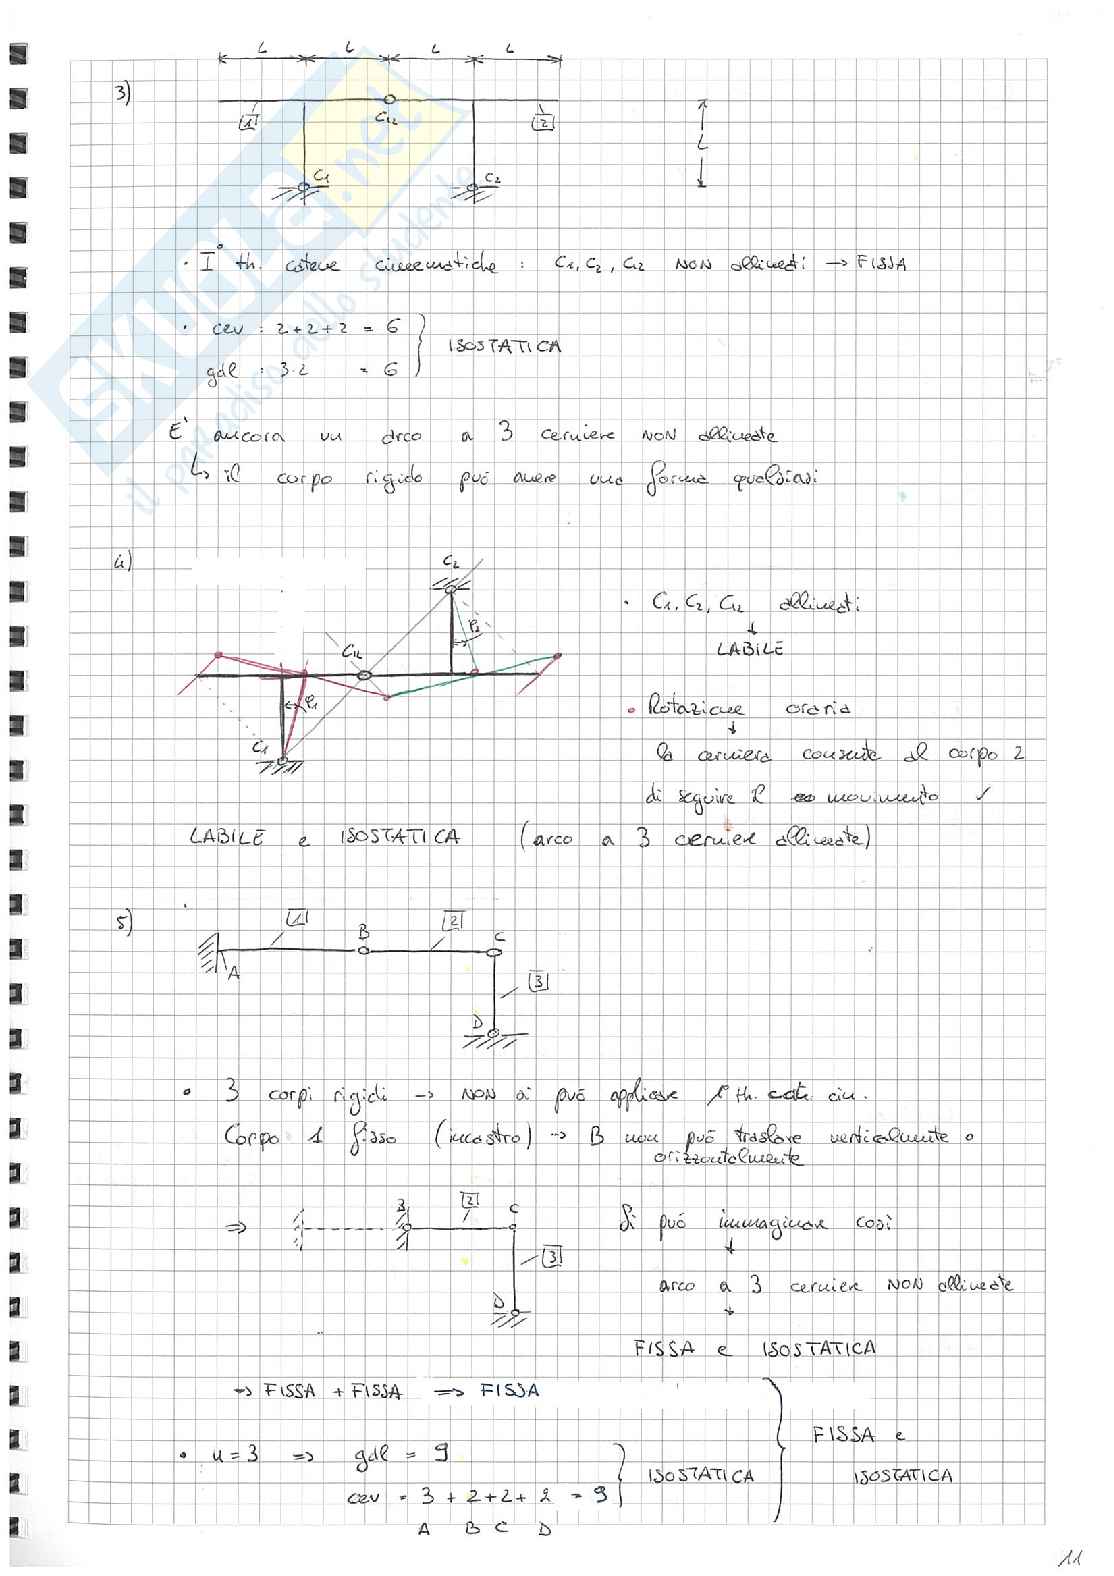 L L L L
3)
1 C12 2
L
C1 C2
SKUOLA.net
il paradiso dello studente
· I° th. catene cinematiche : C1, C2, C12 NON allineati → FISSA
· cev : 2+2+2 = 6
ISOSTATICA
gdl : 3·2 = 6
E' ancora un arco a 3 cerniere NON allineate
↳ il corpo rigido può avere una forma qualsiasi
4)
C2
· C1, C2, C12 allineati
↓
LABILE
φ2
C12
φ1
C1
• Rotazione oraria
↓
la cerniera consente al corpo 2
di seguire il movimento ✓
LABILE e ISOSTATICA (arco a 3 cerniere allineate)
5)
1 B 2 C
A
3
D
• 3 corpi rigidi → NON si può applicare I° th. cat. cin.
Corpo 1 fisso (incastro) → B non può traslare verticalmente o
orizzontalmente
⇒ B 2 C Si può immaginare così
↓
3
arco a 3 cerniere NON allineate
↓
D
FISSA e ISOSTATICA
→ FISSA + FISSA ⇒ FISSA
FISSA e
ISOSTATICA
• n = 3 ⇒ gdl = 9
ISOSTATICA
cev = 3 + 2 + 2 + 2 = 9
A B C D
11